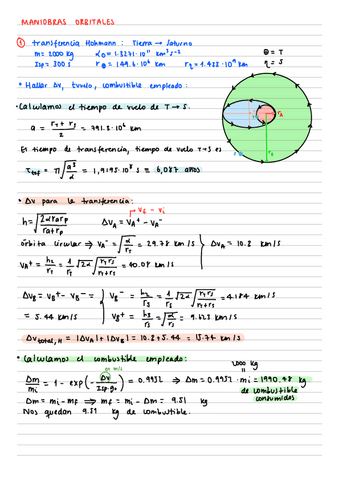 MANIOBRAS ORBITALES
① transferencia Hohmann: Tierra → Saturno
m = 2000 kg α⊙ = 1.3271·10¹¹ km³ s⁻²
Isp = 300 s r⊕ = 149.6·10⁶ km r♄ = 1.428·10⁹ km
⊕ = T
♄ = S
• Hallar Δv, tvuelo, combustible empleado:
• Calculamos el tiempo de vuelo de T → S.
a = (r_T + r_S)/2 = 791.3·10⁶ km
El tiempo de transferencia, tiempo de vuelo T→S es
τtrf = π √(a³/α) = 1,9195·10⁸ s ≡ 6,087 años
• Δv para la transferencia:
h = √(2αrarp/(ra+rp)) ΔvA = vA⁺ − vA⁻
órbita circular → vA⁻ = √(α/r_T) = 29.78 km/s
ΔvA = 10.2 km/s
vA⁺ = h₂/r_T = 1/r_T √2α √(r_T r_S/(r_T+r_S)) = 40.07 km/s
ΔvB = vB⁺ − vB⁻ =
= 5.44 km/s
vB⁻ = h₂/r_S = 1/r_S √2α √(r_T r_S/(r_T+r_S)) = 4.184 km/s
vB⁺ = h₃/r_S = √(α/r_S) = 9.623 km/s
Δvtotal,H = |ΔvA| + |ΔvB| = 10.2+5.44 = 15.74 km/s
• Calculamos el combustible empleado:
en m/s
2000 kg
Δm/mi = 1 − exp(−Δv/(Isp·g₀)) = 0.9952 ⇒ Δm = 0.9952·mi = 1990.48 kg
de combustible
consumidos
Δm = mi − mf ⇒ mf = mi − Δm = 9.51 kg
Nos quedan 9.51 kg de combustible.